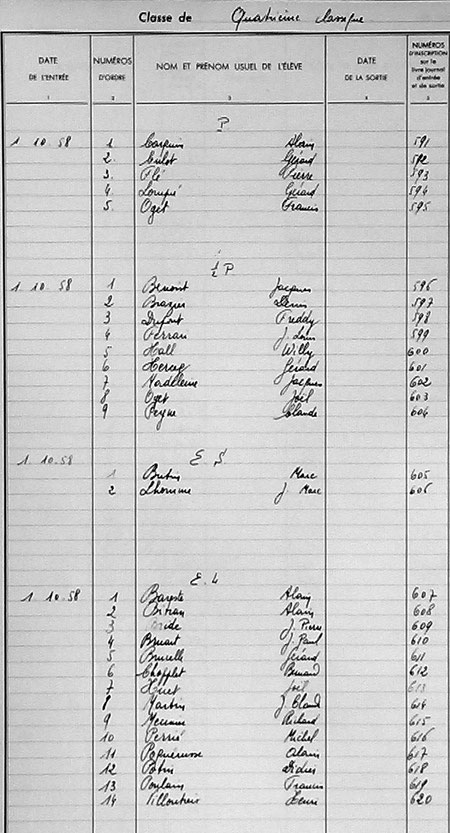 Classe de Quatrième classique
DATE DE L'ENTRÉE NUMÉROS D'ORDRE NOM ET PRÉNOM USUEL DE L'ÉLÈVE DATE DE LA SORTIE NUMÉROS D'INSCRIPTION sur le livre journal d'entrée et de sortie
1 2 3 4 5
P
1 10.58 1 Alain 591
2. Culot Gérard 592
3. Flé Pierre 593
4. Gérard 594
5. Oget Francis 595
1/2 P
1 10 58 1 Benoist Jacques 596
2 Brazier Denis 597
3 Dufont Freddy 598
4 Ferran J. Louis 599
5 Hall Willy 600
6 Gérard 601
7 Madeleine Jacques 602
8 Oget Joël 603
9 Peyre Claude 604
E. S.
1. 10.58
1 Butin Marc 605
2 Lhomme J Marc 606
E. 4
1 10.58 1 Bareste Alain 607
2 Bitran Alain 608
3 J. Pierre 609
4 J. Paul 610
5 Brucelle Gérard 611
6 Chopplet Bernard 612
7 Huet Joël 613
8 Martin J. Claud 614
9 Meunier Richard 615
10 Perrié Michel 616
11 Alain 617
12 Potin Didier 618
13 Poulain Francis 619
14 620